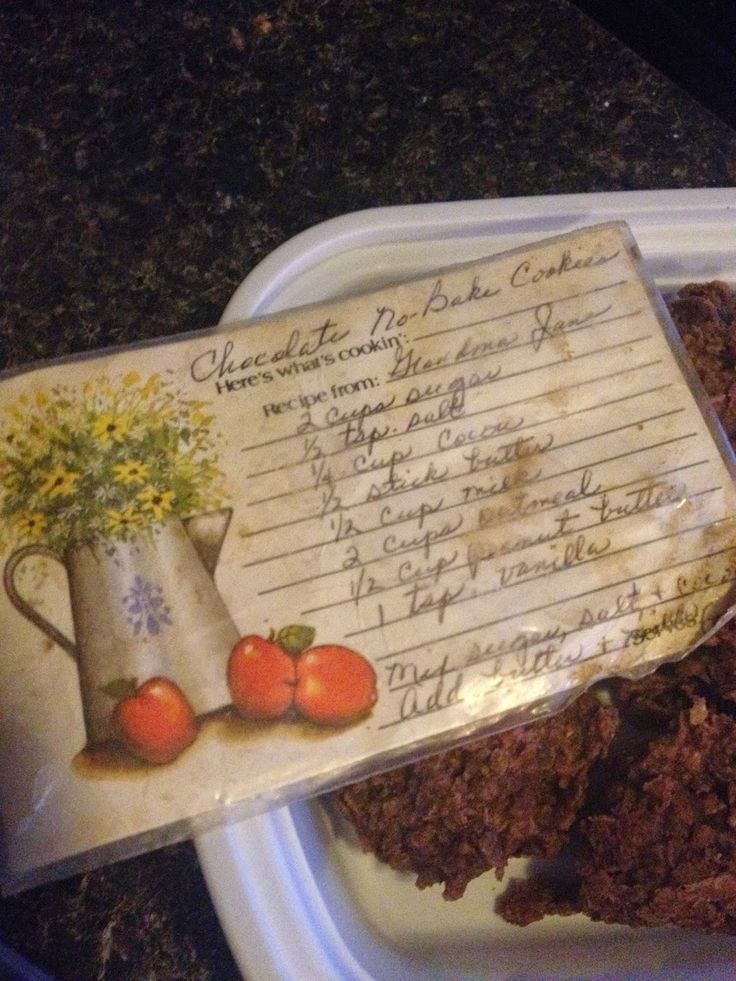 Chocolate No-Bake Cookies
Here's what's cookin':
Recipe from: Grandma Jane
2 cups sugar
1/2 tsp. salt
1/4 cup cocoa
1/2 stick butter
1/2 cup milk
2 cups oatmeal
1/2 cup peanut butter
1 tsp. vanilla
Mix sugar, salt, + cocoa
Add butter +